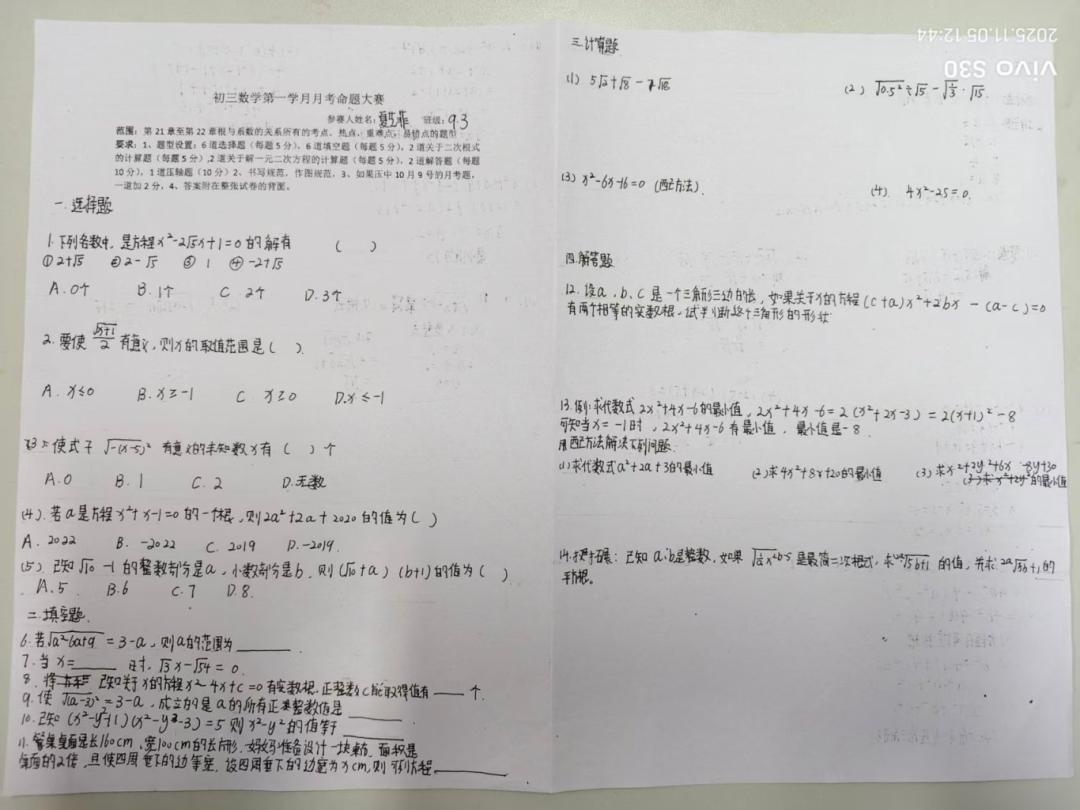 初三数学第一学月月考命题大赛
参赛人姓名: 班级: 9.3
范围:第21章至第22章根与系数的关系所有的考点、热点、重难点、易错点的题型
要求:1、题型设置:6道选择题(每题5分),6道填空题(每题5分),2道关于二次根式
的计算题(每题5分),2道关于解一元二次方程的计算题(每题5分),2道解答题(每题
10分),1道压轴题(10分)2、书写规范,作图规范,3、如果压中10月9号的月考题,
一道加2分,4、答案附在整张试卷的背面。
一.选择题
1.下列各数中,是方程x²-2√5x+1=0的解有 ( )
①2+√5 ②2-√5 ③1 ④-2+√5
A.0个 B.1个 C.2个 D.3个
2.要使 √(x+1)/2 有意义,则x的取值范围是( ).
A.x≤0 B.x≥-1 C x≥0 D.x≤-1
3.使式子 √-(x-5)² 有意义的未知数x有( )个
A.0 B.1 C.2 D.无数
(4).若a是方程x²+x-1=0的一个根,则2a²+2a+2020的值为( )
A.2022 B.-2022 C.2019 D.-2019.
(5).已知√10-1的整数部分是a,小数部分是b,则(√10+a)(b+1)的值为( )
A.5 B.6 C.7 D.8.
二.填空题.
6.若√a²-6a+9=3-a,则a的范围为
7.当x=____时,√3x-√54=0.
8.已知关于x的方程x²-4x+c=0有实数根,正整数c能取得值有____个.
9.使√(a-3)²=3-a,成立的是a的所有正整数值是
10.已知(x²-y²+1)(x²-y²-3)=5则x²-y²的值等于
桌面是长160cm、宽100cm的长方形,准备设计一块桌布,面积是
桌面的2倍,且使四周垂下的边等宽.设四周垂下的边宽为x cm,则可列方程
三.计算题
(1) 5√2+√8-
(2) √0.5²÷√5-√(1/3)·√15
(3) x²-6x-16=0 (配方法).
(4). 4x²-25=0.
四.解答题
12.设a,b,c是一个三角形三边的长,如果关于x的方程(c+a)x²+2bx-(a-c)=0
有两个相等的实数根,试判断这个三角形的形状
13.例:求代数式2x²+4x-6的最小值,2x²+4x-6=2(x²+2x-3)=2(x+1)²-8
可知当x=-1时,2x²+4x-6有最小值,最小值是-8.
用配方法解决下列问题.
(1)求代数式a²+2a+3的最小值
(2)求4x²+8x+20的最小值
(3)求x²+2y²+6x-8y+30
的最小值
14.拓展:已知a,b是整数,如果 是最简二次根式,求 的值,并求 的
平方根。
2025.11.05 12:44
vivo S30